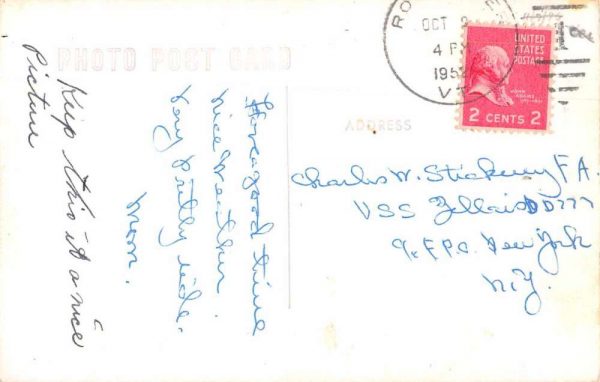 PHOTO POST CARD
Keep this it a nice
Picture
Have a good time
nice weather.
Very Pretty ride.
Mom.
OCT 2
4 PM
1952
VT.
UNITED
STATES
POSTAGE
JOHN
ADAMS
2 CENTS 2
ADDRESS
Charles W. Stickney F A.
USS Zellars DD777
% F.P.O. New York
N.Y.